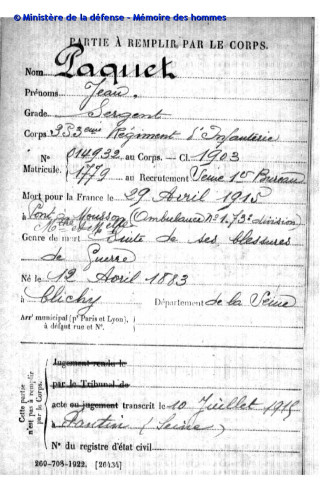 © Ministère de la défense - Mémoire des hommes
PARTIE À REMPLIR PAR LE CORPS.
Nom Paquet
Prénoms Jean.
Grade Sergent
Corps 353eme Régiment d'Infanterie
N° 014932 au Corps. — Cl. 1903
Matricule. 1779 au Recrutement Seine 1er Bureau
Mort pour la France le 29 Avril 1915
à Pont à Mousson (Ambulance n° 1. 73e division
Mthe et Mlle
Genre de mort Suite de ses blessures
de Guerre
Né le 12 Avril 1883
à Clichy Département de la Seine
Arrt municipal (pr Paris et Lyon),
à défaut rue et N°.
Cette partie
n'est pas à remplir
par le Corps.
Jugement rendu le
par le Tribunal de
acte ou jugement transcrit le 10 Juillet 1915
à Pantin (Seine)
N° du registre d'état civil
260-708-1922. [26434]